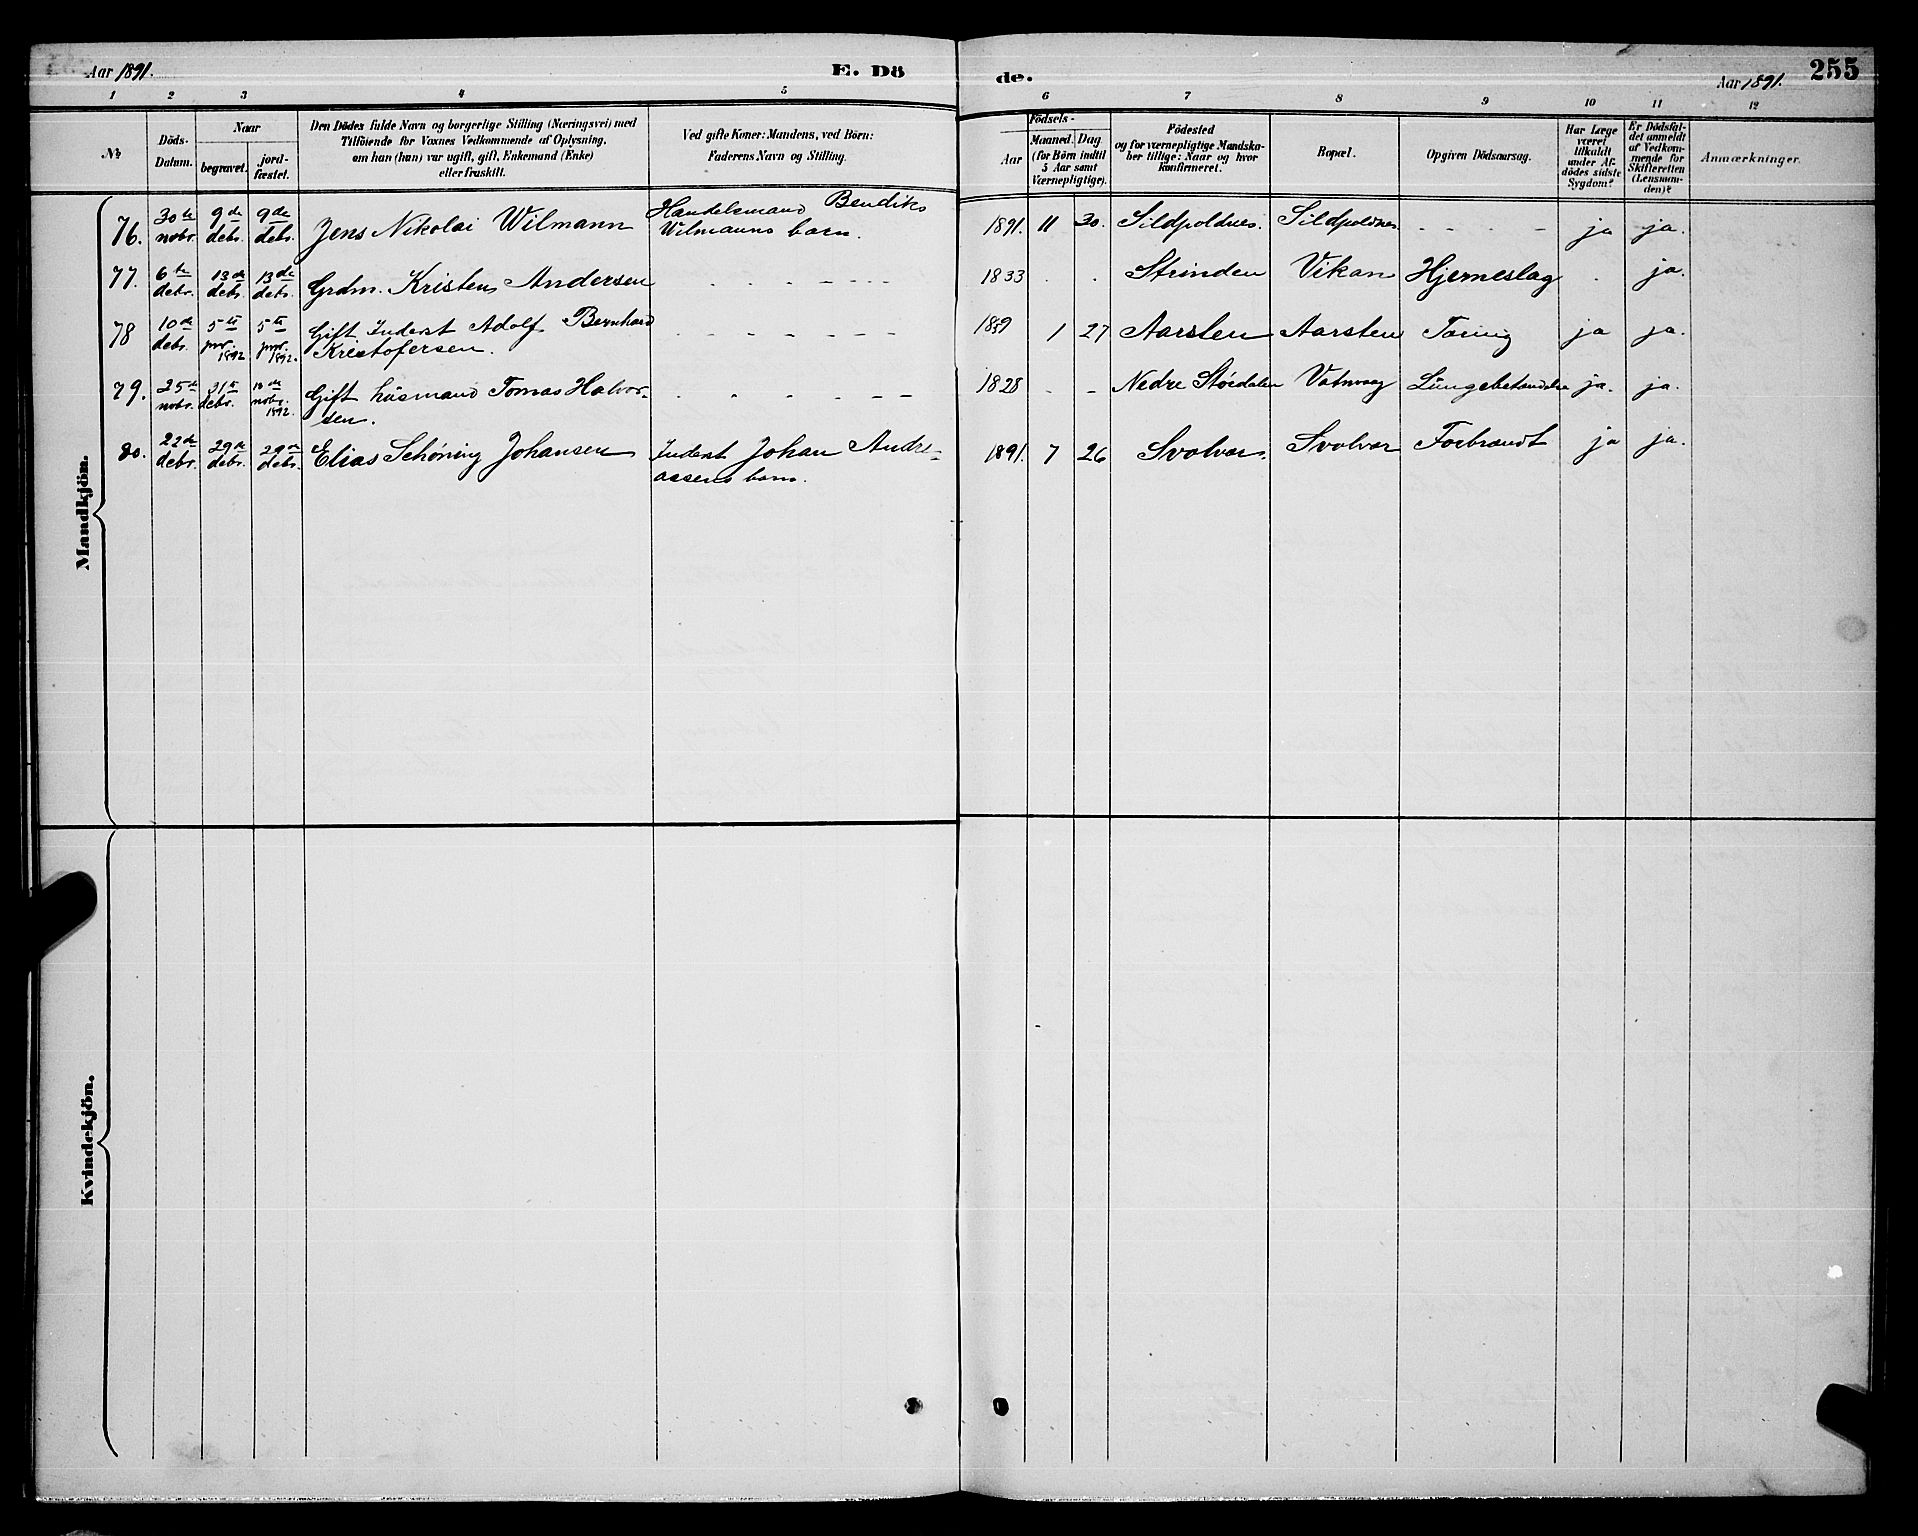 Aar 1891.
E. Dö
de.
Aar 1891.
255
1 2 3 4 5 6 7 8 9 10 11 12
№
Döds-
Datum.
Naar
begravet.
jord-
fæstet.
Den Dödes fulde Navn og borgerlige Stilling (Næringsvei) med
Tilföiende for Voxnes Vedkommende af Oplysning,
om han (hun) var ugift, gift, Enkemand (Enke)
eller fraskilt.
Ved gifte Koner: Mandens, ved Börn:
Faderens Navn og Stilling.
Födsels-
Aar
Maaned.
Dag
(for Börn indtil
5 Aar samt
Værnepligtige).
Födested
og for værnepligtige Mandska-
ber tillige: Naar og hvor
konfirmeret.
Bopæl.
Opgiven Dödsaarsag.
Har Læge
været
tilkaldt
under Af-
dödes sidste
Sygdom?
Er Dödsfal-
det anmeldt
af Vedkom-
mende for
Skifteretten
(Lensman-
den)?
Anmærkninger.
Mandkjön.
76. 30te nobr. 9de debr. 9de debr. Jens Nikolai Wilmann Handelsmand Bendiks
Wilmanns barn. 1891. 11 30. Sildpoldnes. Sildpoldnes - - - - ja ja.
77. 6te debr. 13de debr. 13de debr. Grdm. Kristens Andersen - - - - - - 1833 . . Strinden Vikan Hjerneslag . ja.
78 10de debr. 5te jnr. 1892 5te jnr. 1892. Gift Inderst Adolf Bernhard
Kristofersen. - - - - - - 1859 1 27 Aarsten Aarsten Tæring ja ja.
79. 25de nobr. 31te debr. nobr. 1892. Gift husmand Tomas Halvor-
sen. - - - - - - 1828 - - Nedre Størdalen Vatnvaag Lungebetændelse ja. ja.
80. 22de debr. 29de debr. 29de debr. Elias Schøning Johansen Inderst Johan Andre-
assens barn. 1891. 7 26 Svolvær. Svolvær Forbrændt ja ja.
Kvindekjön.